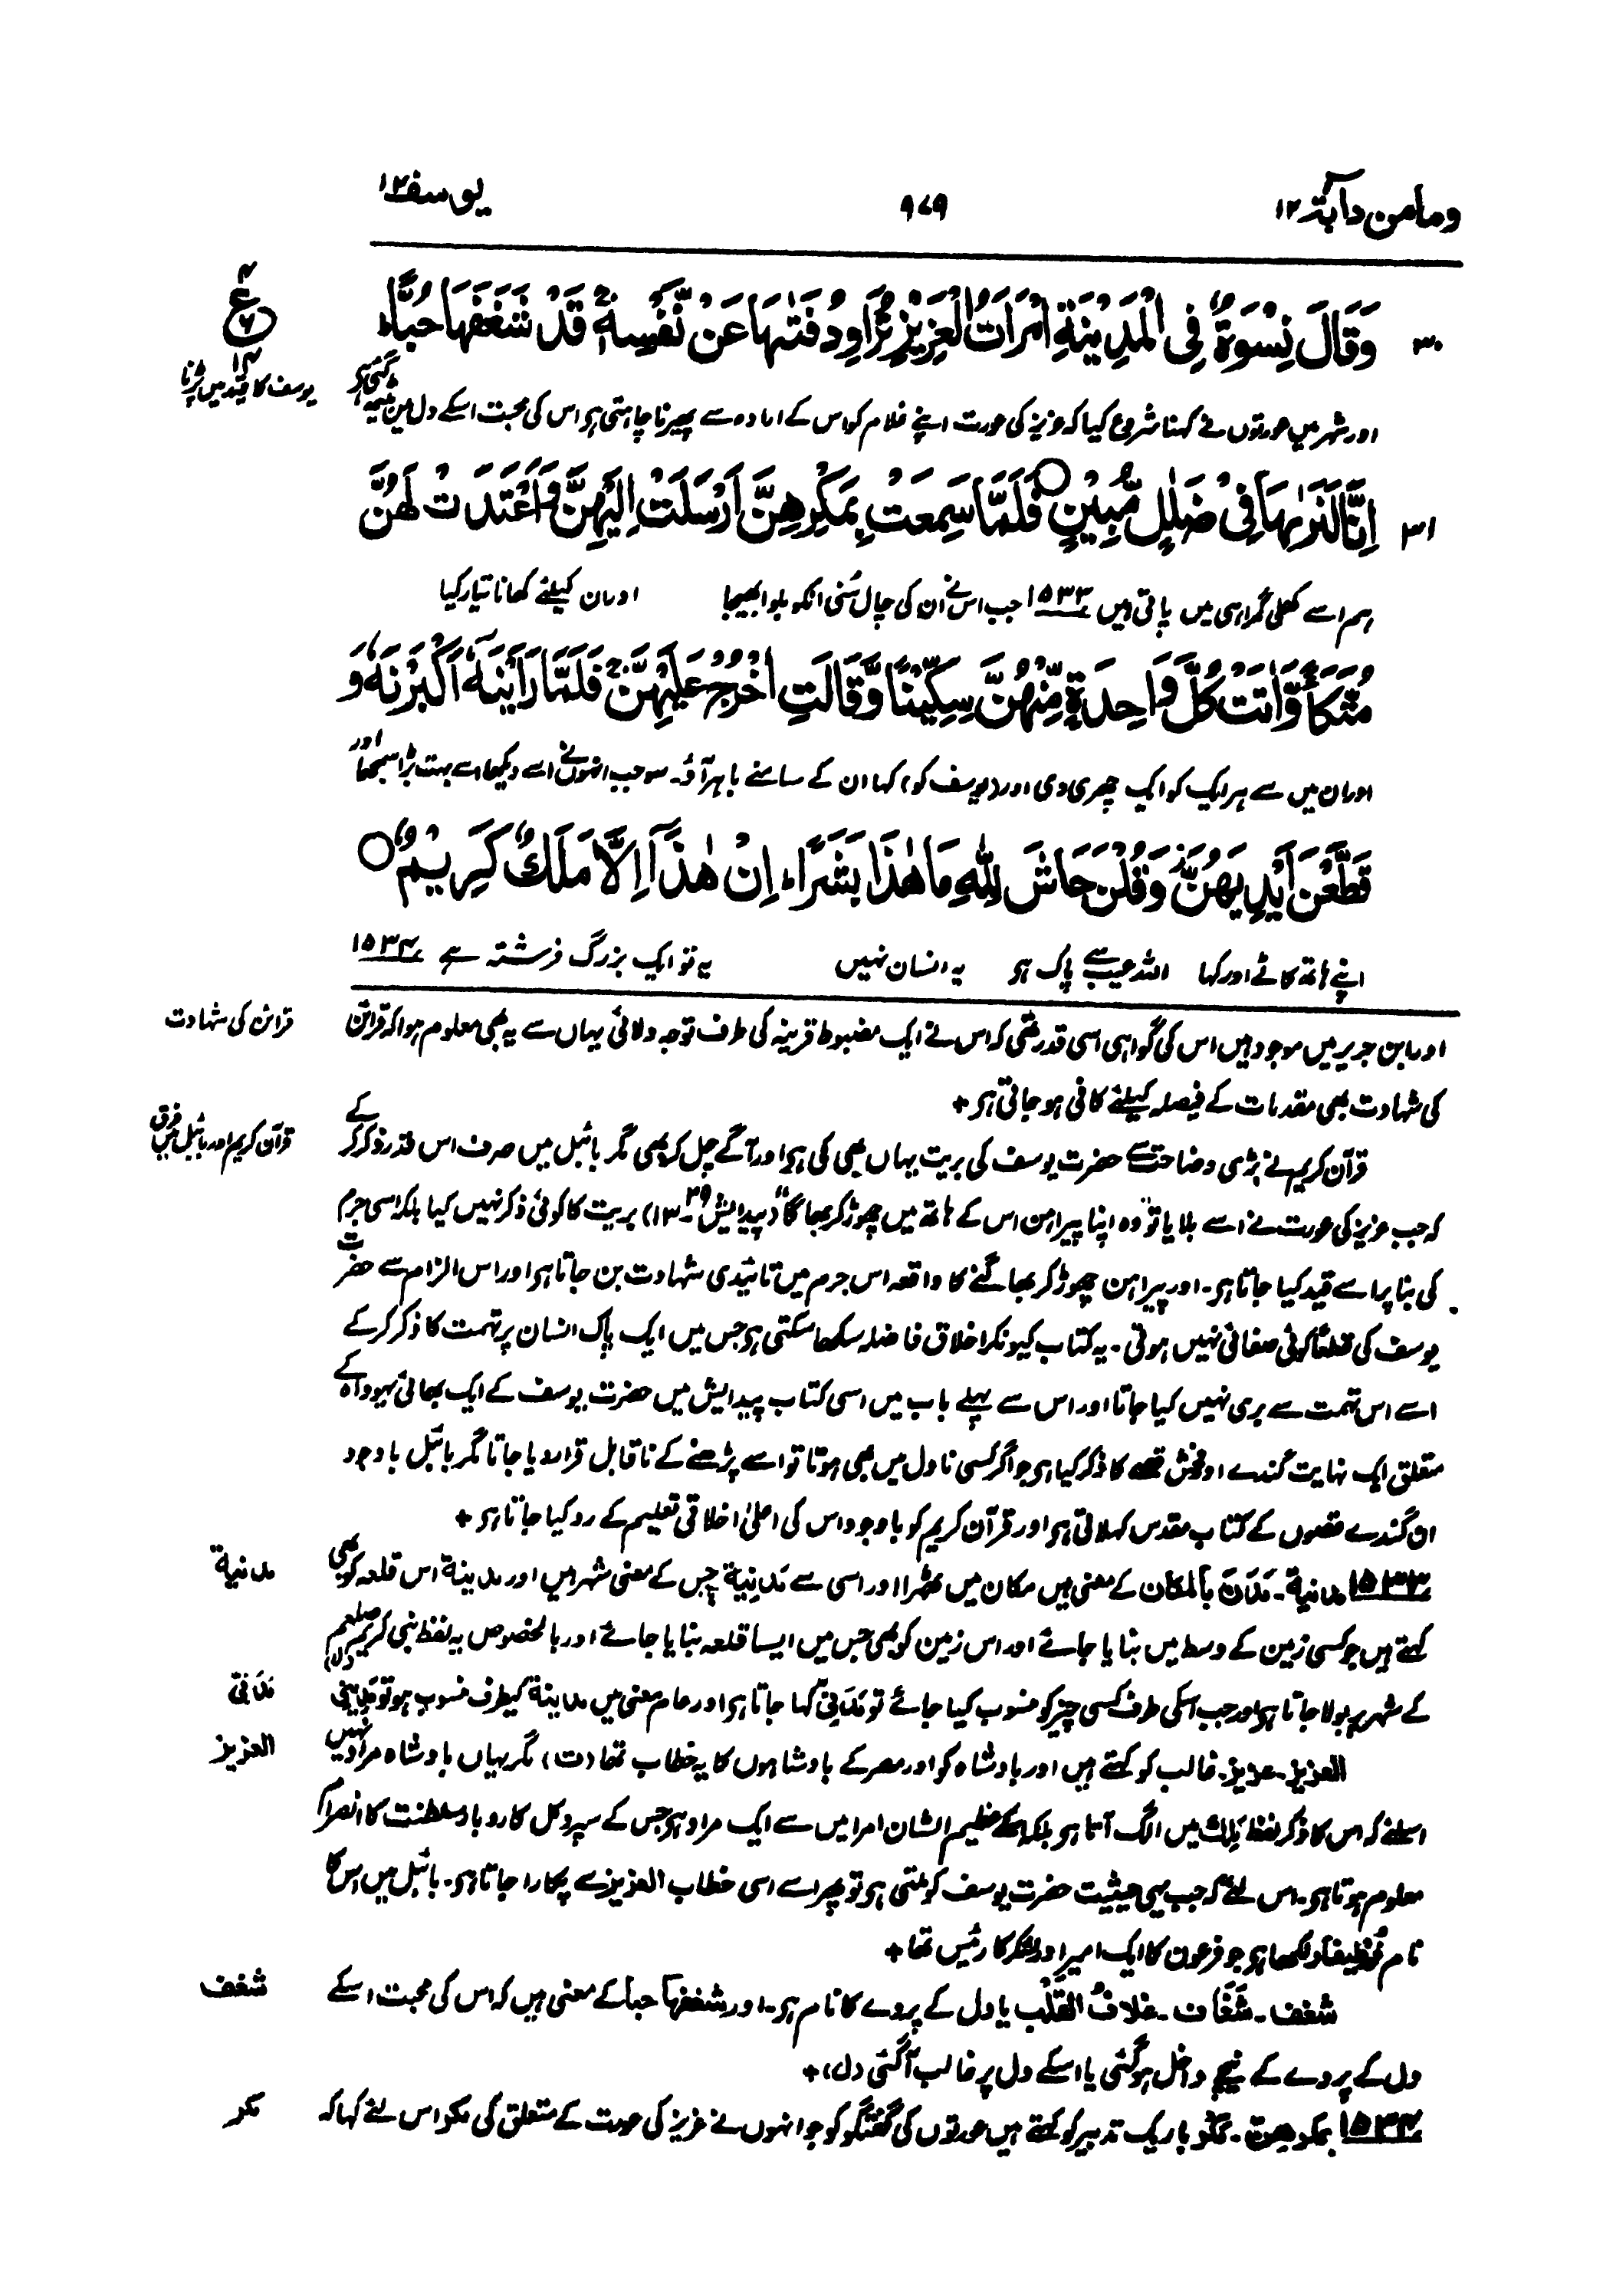 وما من دآبۃ ١٢
٩٤٩
یوسف ١٢
٣٠ وَقَالَ نِسْوَةٌ فِى الْمَدِيْنَةِ امْرَاَتُ الْعَزِيْزِ تُرَاوِدُ فَتٰىهَا عَنْ نَّفْسِهٖ ۚ قَدْ شَغَفَهَا حُبًّا ؕ
ع
یوسف کا قید میں پڑنا
اور شہر میں عورتوں نے کہنا شروع کیا کہ عزیز کی عورت اپنے غلام کو اس کے ارادہ سے پھیرنا چاہتی ہو اس کی محبت اسکے دل میں بیٹھ گئی ہو
٣١ اِنَّا لَنَرٰىهَا فِىْ ضَلٰلٍ مُّبِيْنٍ ○ فَلَمَّا سَمِعَتْ بِمَكْرِهِنَّ اَرْسَلَتْ اِلَيْهِنَّ وَاَعْتَدَتْ لَهُنَّ
ہم اسے کھلی گمراہی میں پاتی ہیں ١٥٣٣ جب اس نے ان کی چال سُنی انکو بلوا بھیجا اور ان کیلئے کھانا تیار کیا
مُتَّكَاً وَّاٰتَتْ كُلَّ وَاحِدَةٍ مِّنْهُنَّ سِكِّيْنًا وَّقَالَتِ اخْرُجْ عَلَيْهِنَّ ۚ فَلَمَّا رَاَيْنَهٗۤ اَكْبَرْنَهٗ وَ
اور ان میں سے ہر ایک کو ایک چھری دی اور (یوسف کو) کہا ان کے سامنے باہر آؤ۔ سو جب انہوں نے اسے دیکھا اسے بہت بڑا سمجھا اور
قَطَّعْنَ اَيْدِيَهُنَّ وَقُلْنَ حَاشَ لِلّٰهِ مَا هٰذَا بَشَرًا ؕ اِنْ هٰذَاۤ اِلَّا مَلَكٌ كَرِيْمٌ ○
اپنے ہاتھ کاٹے اور کہا اللہ عیب سے پاک ہو یہ انسان نہیں یہ تو ایک بزرگ فرشتہ ہے ١٥٣٤
قرائن کی شہادت
اور ابن جریر میں موجود ہیں اس کی گواہی اسی قدر تھی کہ اس نے ایک مضبوط قرینہ کی طرف توجہ دلائی یہاں سے یہ بھی معلوم ہوا کہ قرائن
کی شہادت بھی مقدمات کے فیصلہ کیلئے کافی ہو جاتی ہو +
قرآن کریم اور بائبل میں فرق
قرآن کریم نے بڑی وضاحت سے حضرت یوسف کی بریت یہاں بھی کی ہو اور آگے چل کر بھی مگر بائبل میں صرف اس قدر ذکر کر کے
کہ جب عزیز کی عورت نے اسے بلایا تو "وہ اپنا پیراہن اس کے ہاتھ میں چھوڑ کر بھاگا" (پیدایش ٣٩۔ ١٣) بریت کا کوئی ذکر نہیں کیا بلکہ اسی جرم
کی بنا پر اسے قید کیا جاتا ہو۔ اور پیراہن چھوڑ کر بھاگنے کا واقعہ اس جرم میں تائیدی شہادت بن جاتا ہو اور اس الزام سے حضرت
یوسف کی قطعاً کوئی صفائی نہیں ہوتی۔ یہ کتاب کیونکر اخلاق فاضلہ سکھا سکتی ہو جس میں ایک پاک انسان پر تہمت کا ذکر کر کے
اسے اس تہمت سے بری نہیں کیا جاتا اور اس سے پہلے باب میں اسی کتاب پیدایش میں حضرت یوسف کے ایک بھائی یہوداہ کے
متعلق ایک نہایت گندے اور فحش قصے کا ذکر کیا ہو جو اگر کسی ناول میں بھی ہوتا تو اسے پڑھنے کے ناقابل قرار دیا جاتا مگر بائبل باوجود
ان گندے قصوں کے کتاب مقدس کہلاتی ہو اور قرآن کریم کو باوجود اس کی اعلیٰ اخلاقی تعلیم کے رد کیا جاتا ہو +
مدنیة
١٥٣٣ مدنیة۔ مَدَنَ بالمکان کے معنی ہیں مکان میں ٹھہرا اور اسی سے مَدِنیة ہے جس کے معنی شہر ہیں اور مدینة اس قلعہ کو بھی
کہتے ہیں جو کسی زمین کے وسط میں بنایا جائے اور اس زمین کو بھی جس میں ایسا قلعہ بنایا جائے اور بالخصوص یہ لفظ نبی کریم صلعم
مَدَنیّ
کے شہر پر بولا جاتا ہو اور جب اسکی طرف کسی چیز کو منسوب کیا جائے تو مَدَنیّ کہا جاتا ہو اور عام معنی میں مدینة کیطرف منسوب ہو تو مَدِینی (ل)
العزیز
العزیز۔ عزیز۔ غالب کو کہتے ہیں اور بادشاہ کو اور مصر کے بادشاہوں کا یہ خطاب تھا (ت) مگر یہاں بادشاہ مراد نہیں
اسلئے کہ اس کا ذکر لفظ مَلِك میں الگ آتا ہو بلکہ اسکے عظیم الشان امرا میں سے ایک مراد ہو جس کے سپرد کل کاروبار سلطنت کا انصرام
معلوم ہوتا ہو۔ اس لئے کہ جب یہی حیثیت حضرت یوسف کو ملتی ہو تو پھر اسے اسی خطاب العزیز سے پکارا جاتا ہو۔ بائبل میں اس کا
نام فوطیفار لکھا ہو جو فرعون کا ایک امیر اور لشکر کا رئیس تھا +
شغف
شغف۔ شَغَاف۔ غلافُ القَلْب یا دل کے پردے کا نام ہو۔ اور شغفہا حبا کے معنی ہیں کہ اس کی محبت اسکے
دل کے پردے کے نیچے داخل ہو گئی یا اسکے دل پر غالب آ گئی (ل) +
مکر
١٥٣٤ بمکرھن۔ مکر باریک تدبیر کو کہتے ہیں عورتوں کی گفتگو کو جو انہوں نے عزیز کی عورت کے متعلق کی مکر اس لئے کہا کہ